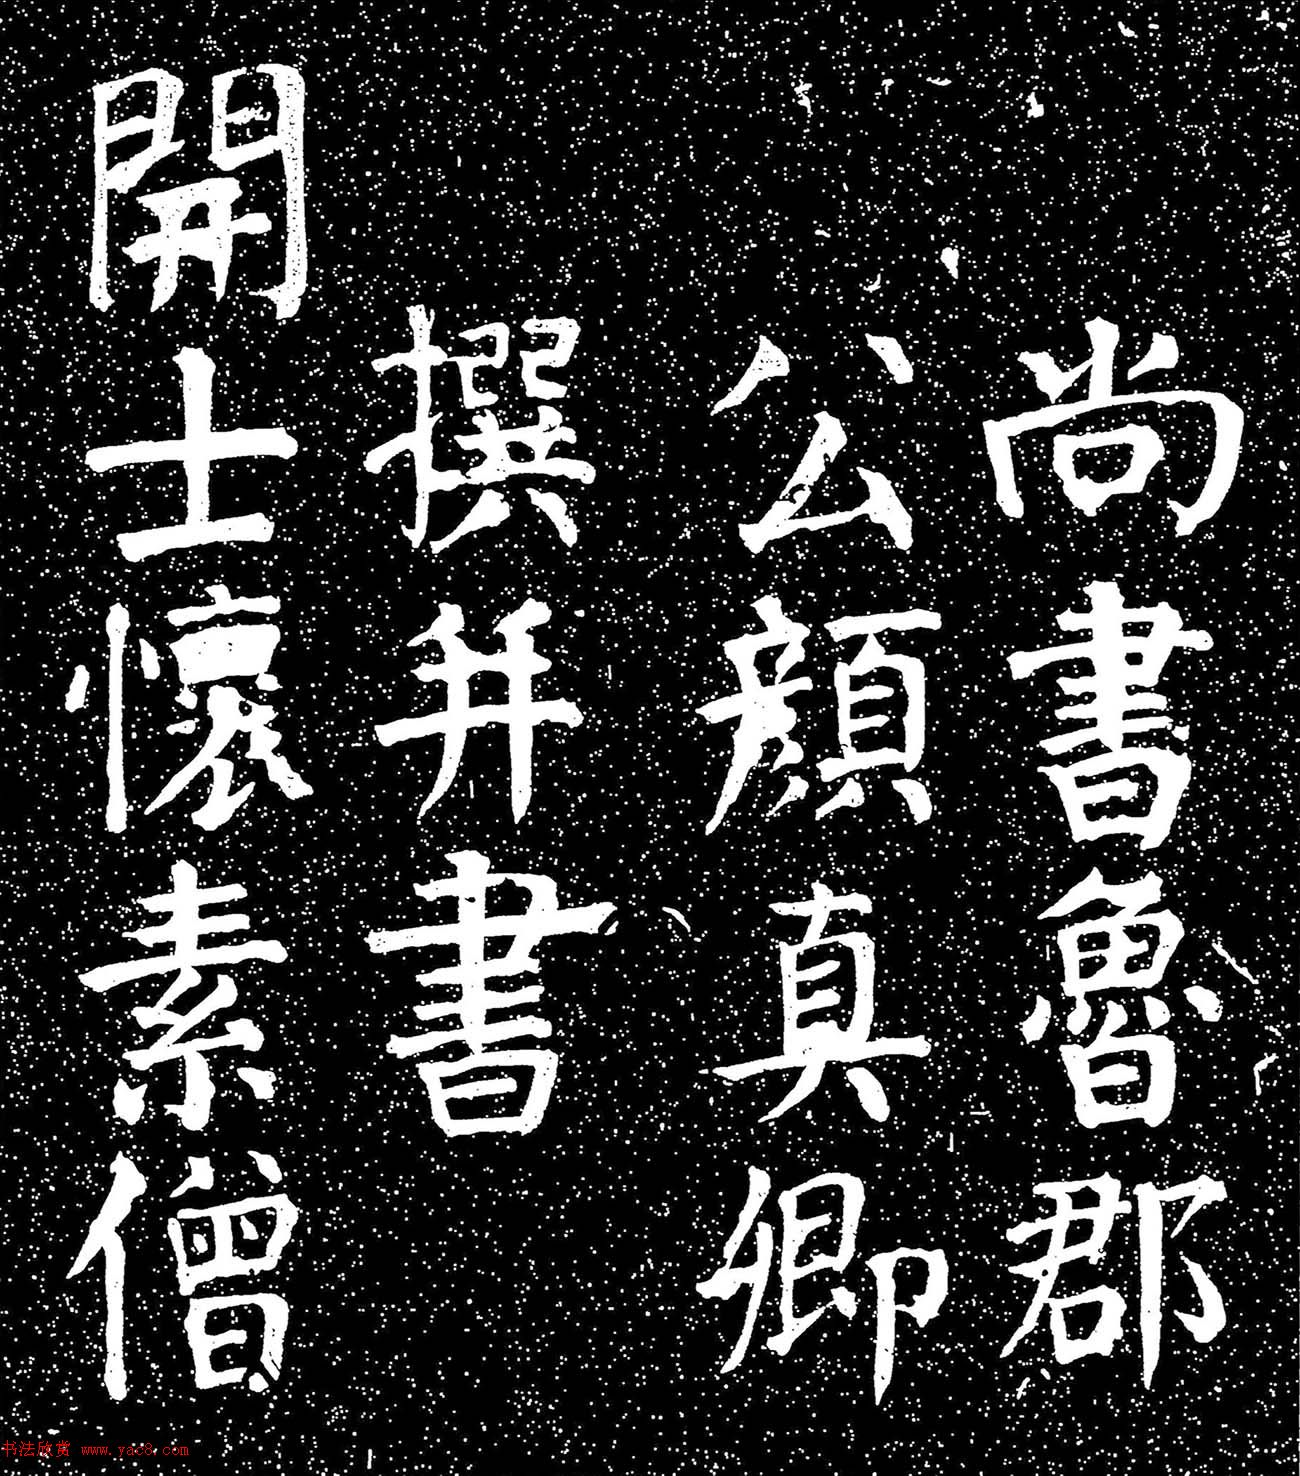 尚書魯郡
公顔真卿
撰并書
開士懷素僧
书法欣赏 www.yac8.com